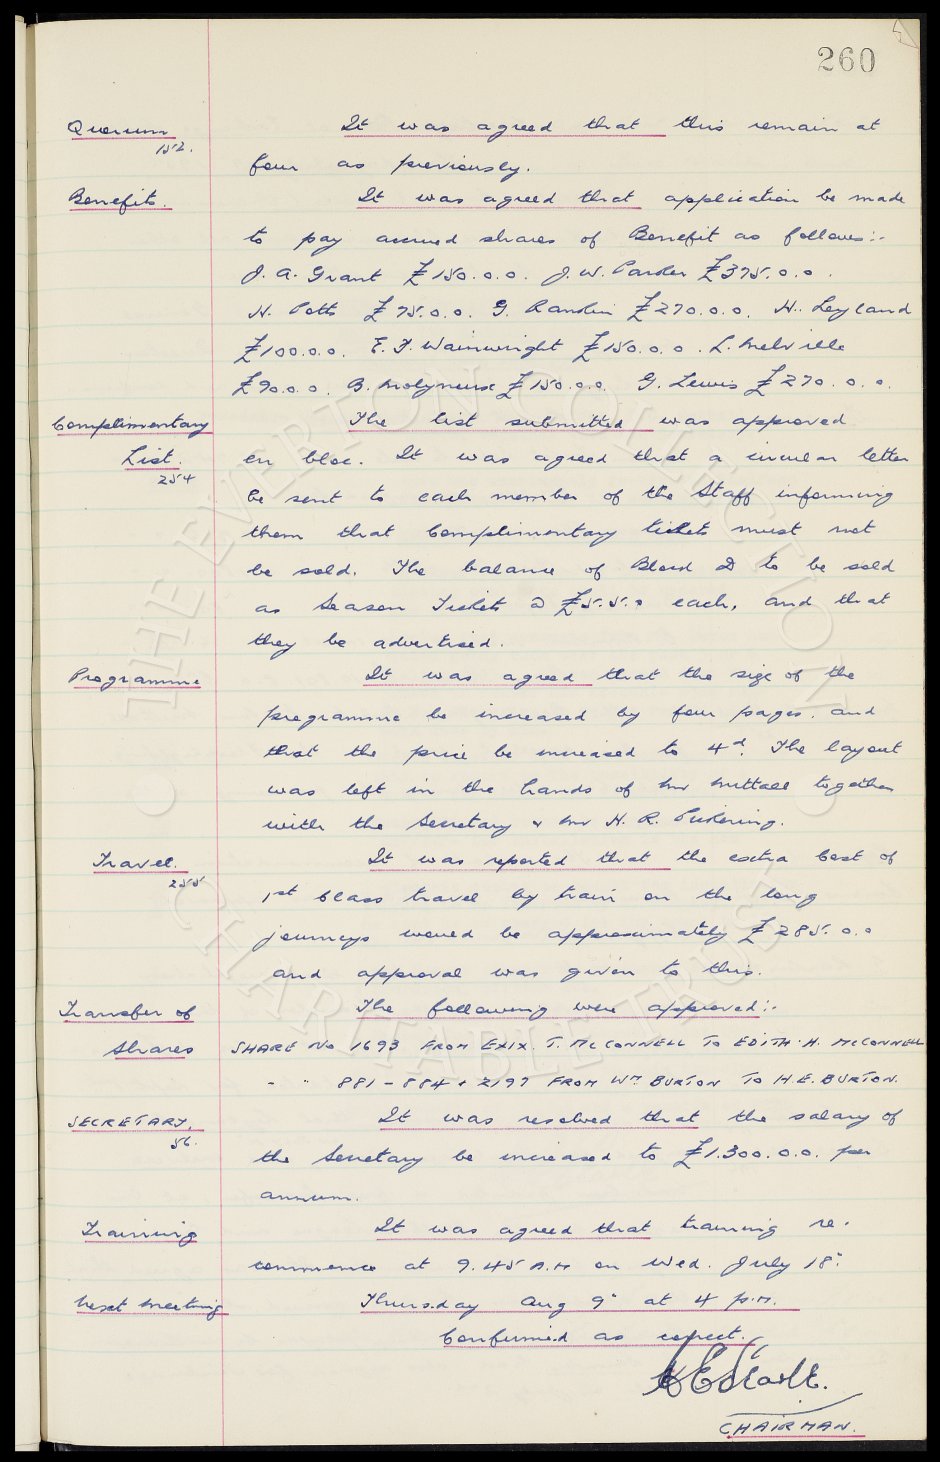 260
Quorum It was agreed that this remain at
152.
four as previously.
Benefits. It was agreed that application be made
to pay accrued shares of Benefit as follows:-
J. A. Grant £150.0.0. J. W. Parker £375.0.0.
H. Potts £75.0.0. G. Rankin £270.0.0. H. Leyland
£100.0.0. E. F. Wainwright £150.0.0. L. Melville
£90.0.0 B. Molyneux £150.0.0. G. Lewis £270.0.0.
Complimentary The list submitted was approved
List. en bloc. It was agreed that a circular letter
254
be sent to each member of the Staff informing
them that Complimentary tickets must not
be sold. The balance of Block D to be sold
as Season Tickets @ £5.5.0 each, and that
they be advertised.
Programme It was agreed that the size of the
programme be increased by four pages. and
that the price be increased to 4d. The layout
was left in the hands of Mr Nuttall together
with the Secretary & Mr H. R. Pickering.
Travel. It was reported that the extra Cost of
255
1st Class travel by train on the long
journeys would be approximately £285.0.0
and approval was given to this.
Transfer of The following were approved:-
Shares SHARE No 1693 FROM EXIX. T. McCONNELL TO EDITH. H. McCONNELL
- " 881-884 + 2197 FROM WM BURTON TO H.E. BURTON.
SECRETARY. It was resolved that the salary of
56.
the Secretary be increased to £1.300.0.0. per
annum.
Training It was agreed that training re-
commence at 9.45 A.M on Wed. July 18"
Next Meeting Thursday Aug 9" at 4 p.m.
Confirmed as correct.
CHAIRMAN.
THE EVERTON COLLECTION
CHARITABLE TRUST